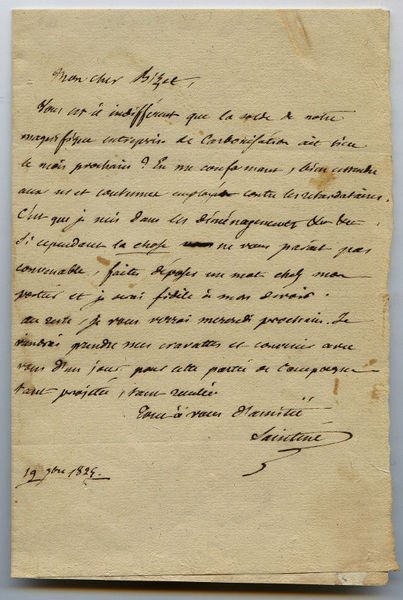 Mon cher Bizet,
Vous est il indifférent que la solde de notre
magnifique entreprise de Carbonisation ait lieu
le mois prochain ? En me conformant, bien entendu
aux us et coutumes employés contre les retardataires.
C'est que je suis dans les déménagements
Si cependant la chose ne vous parait pas
convenable, faites déposer un mot chez mon
portier et je serai fidèle à mon devoir.
au reste, je vous verrai mercredi prochain. Je
viendrai prendre mes cravattes et convenir avec
vous d'un jour pour cette partie de Campagne
tant projettée, tant reculée.
Tout à vous d'amitié
Saintine
19 9bre 1825.